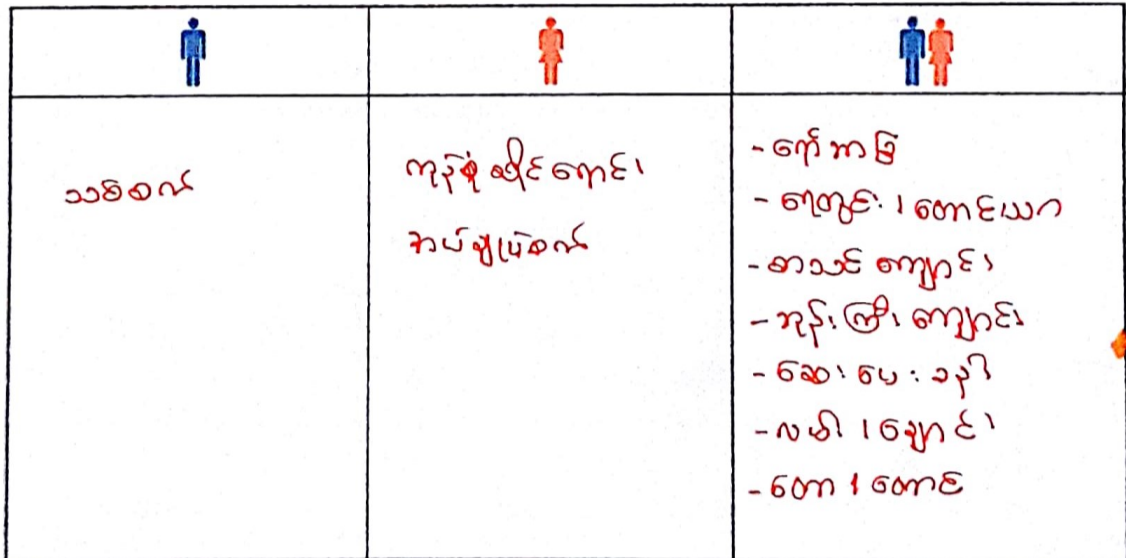 သစ်စက်
ကုန်စုံဆိုင်ရောင်း
အပ်ချုပ်စက်
- ရော်ဘာခြံ
- ရေတွင်း၊ တောင်ယာ
- စာသင်ကျောင်း
- ဘုန်းကြီးကျောင်း
- ဆေးပေးခန်း
- လယ်၊ ချောင်း
- တော၊ တောင်